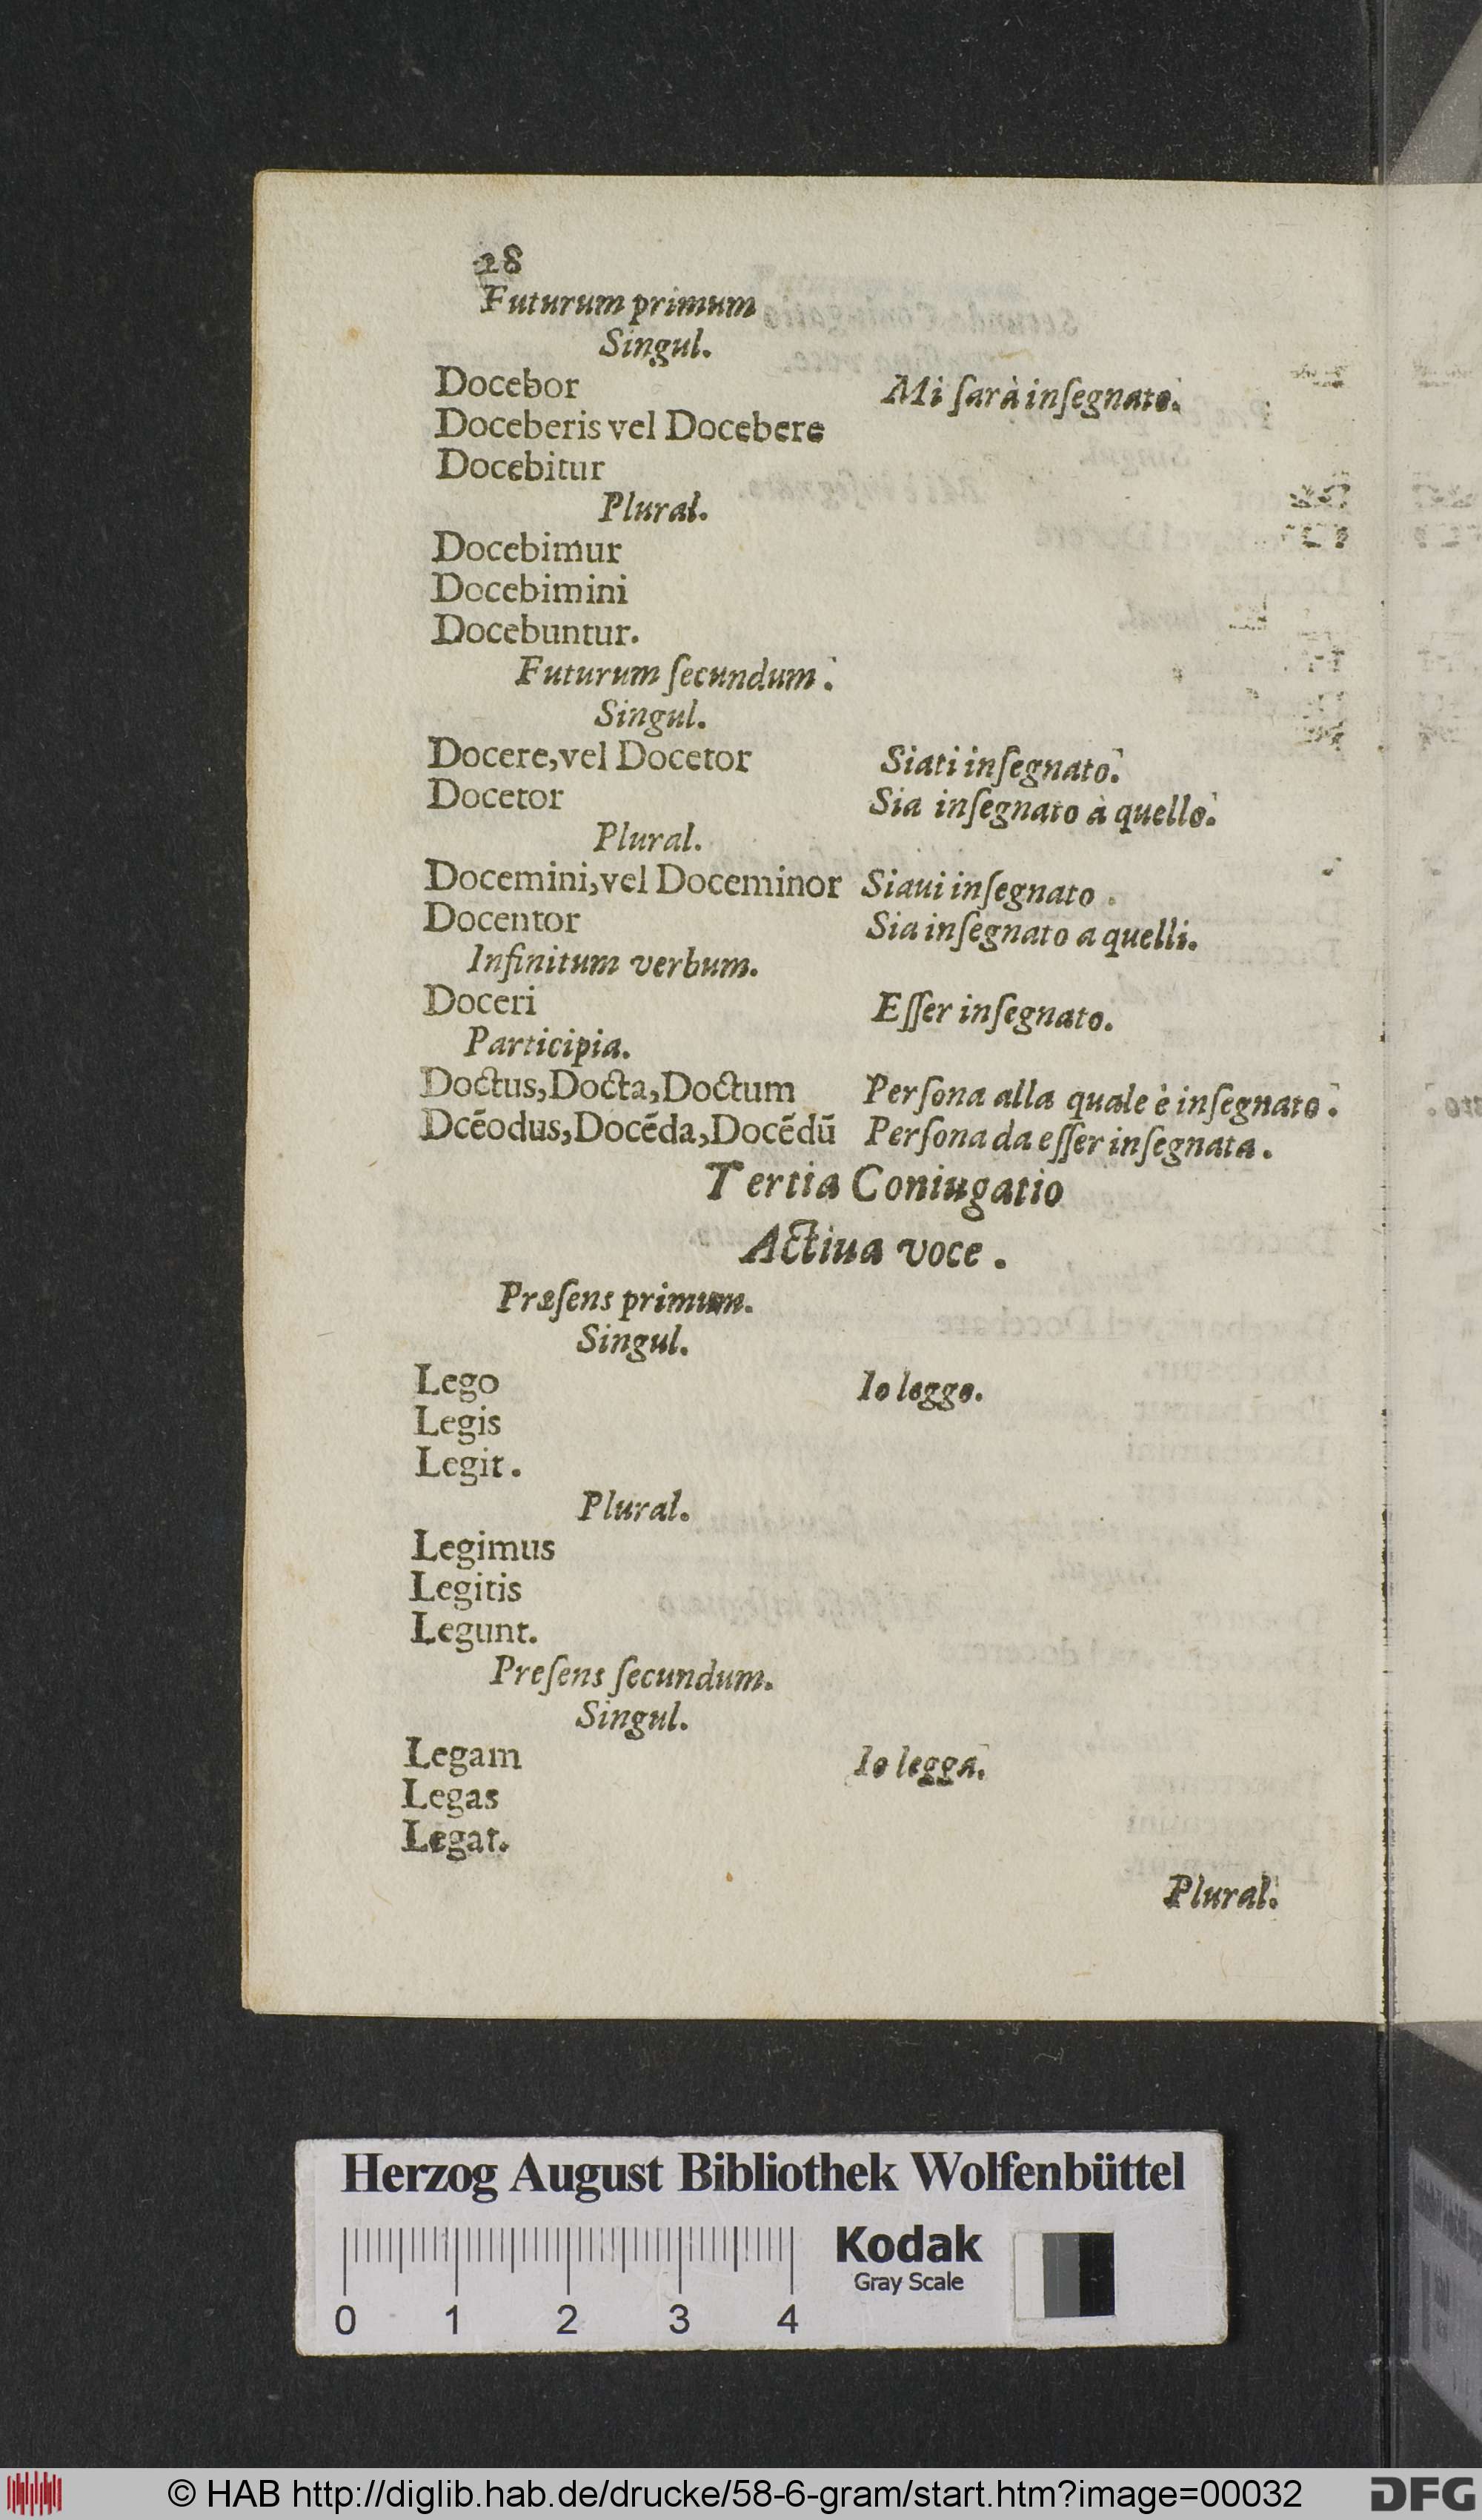 28
Futurum primum
Singul.
Docebor Mi ſarà inſegnato.
Doceberis vel Docebere
Docebitur
Plural.
Docebimur
Docebimini
Docebuntur.
Futurum ſecundum.
Singul.
Docere,vel Docetor Siati inſegnato.
Docetor Sia inſegnato à quello.
Plural.
Docemini,vel Doceminor Siaui inſegnato.
Docentor Sia inſegnato a quelli.
Infinitum verbum.
Doceri Eſſer inſegnato.
Participia.
Doctus,Docta,Doctum Perſona alla quale è inſegnato.
Dcēodus,Docēda,Docēdū Perſona da eſſer inſegnata.
Tertia Coniugatio
Actiua voce.
Præſens primum.
Singul.
Lego Io leggo.
Legis
Legit.
Plural.
Legimus
Legitis
Legunt.
Preſens ſecundum.
Singul.
Legam Io legga.
Legas
Legat.
Plural.
Herzog August Bibliothek Wolfenbüttel
Kodak
Gray Scale
0 1 2 3 4
© HAB http://diglib.hab.de/drucke/58-6-gram/start.htm?image=00032
DFG